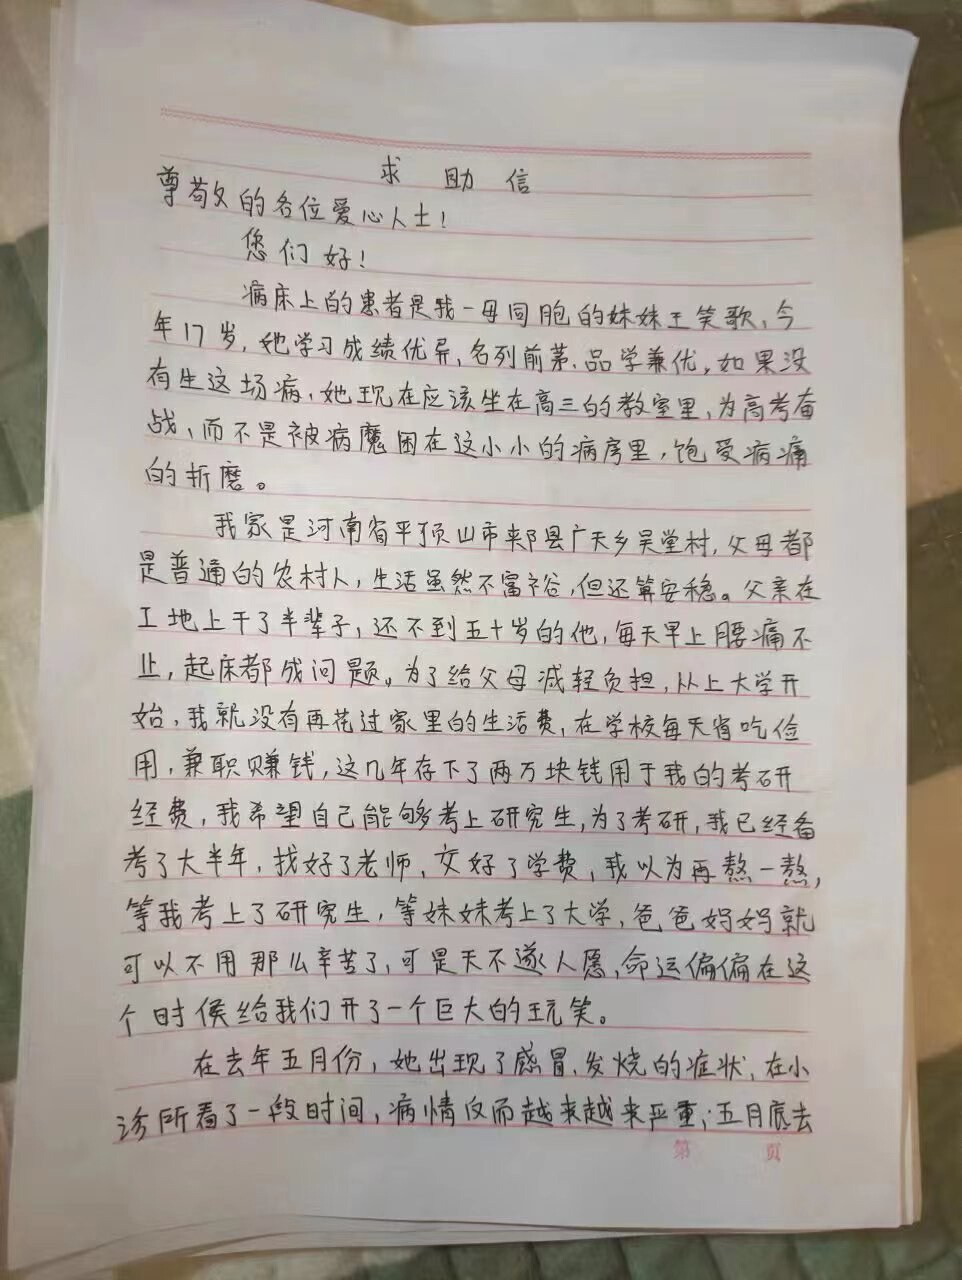 求助信
尊敬的各位爱心人士！
您们好！
病床上的患者是我一母同胞的妹妹王笑歌，今
年17岁，她学习成绩优异、名列前茅、品学兼优，如果没
有生这场病，她现在应该坐在高三的教室里，为高考奋
战，而不是被病魔困在这小小的病房里，饱受病痛
的折磨。
我家是河南省平顶山市郏县广天乡吴堂村，父母都
是普通的农村人，生活虽然不富裕，但还算安稳。父亲在
工地上干了半辈子，还不到五十岁的他，每天早上腰痛不
止，起床都成问题。为了给父母减轻负担，从上大学开
始，我就没有再花过家里的生活费，在学校每天省吃俭
用，兼职赚钱，这几年存下了两万块钱用于我的考研
经费，我希望自己能够考上研究生，为了考研，我已经备
考了大半年，找好了老师，交好了学费，我以为再熬一熬，
等我考上了研究生，等妹妹考上了大学，爸爸妈妈就
可以不用那么辛苦了，可是天不遂人愿，命运偏偏在这
个时候给我们开了一个巨大的玩笑。
在去年五月份，她出现了感冒、发烧的症状，在小
诊所看了一段时间，病情反而越来越来严重；五月底去
第 页